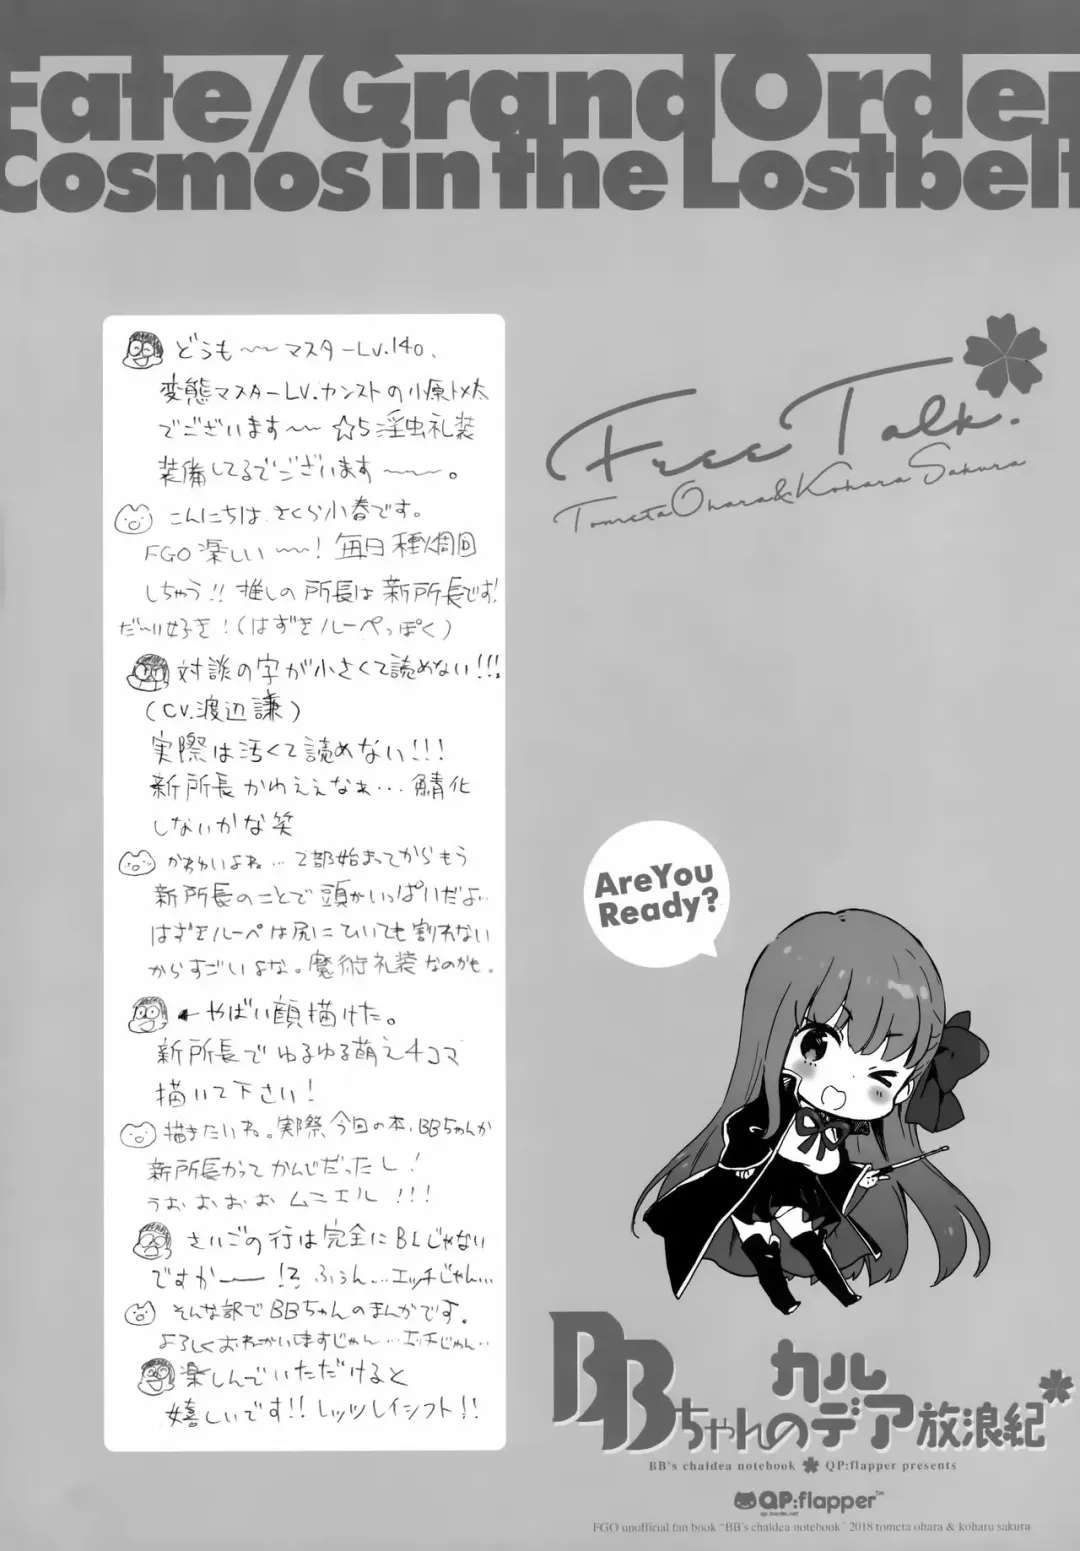 Fate/Grand Order
Cosmos in the Lostbelt
どうも〜〜マスターLv.140、
変態マスターLV.カンストの小原トメ太
でございます〜〜 ☆5淫虫礼装
装備してるでございます〜〜〜。
こんにちは、さくら小春です。
FGO楽しい〜〜！毎日種火周回
しちゃう!! 推しの所長は新所長です!
だ〜い好き！(はずきルーペっぽく)
対談の字が小さくて読めない!!!
(CV.渡辺謙)
実際は汚くて読めない!!!
新所長かわええなぁ…鯖化
しないかな笑
かわいいよね…2部始まってからもう
新所長のことで頭がいっぱいだよ…
はずきルーペは尻にひいても割れない
からすごいよな。魔術礼装なのかも。
←やばい顔描けた。
新所長でゆるゆる萌え4コマ
描いて下さい！
描きたいね。実際今回の本、BBちゃんか
新所長かってかんじだったし！
うおおおお ムニエル!!!
さいごの行は完全にBLじゃない
ですかー!? ふぅん…エッチじゃん…
そんな訳でBBちゃんのまんがです。
よろしくおねがいしますじゃん…エッチじゃん…
楽しんでいただけると
嬉しいです!! レッツレイシフト!!
Free Talk.
Tometa Ohara & Koharu Sakura
Are You
Ready?
BBちゃんのカルデア放浪紀
BB's chaldea notebook QP:flapper presents
QP:flapper™
qp.bambi.net
FGO unofficial fan book "BB's chaldea notebook" 2018 tometa ohara & koharu sakura